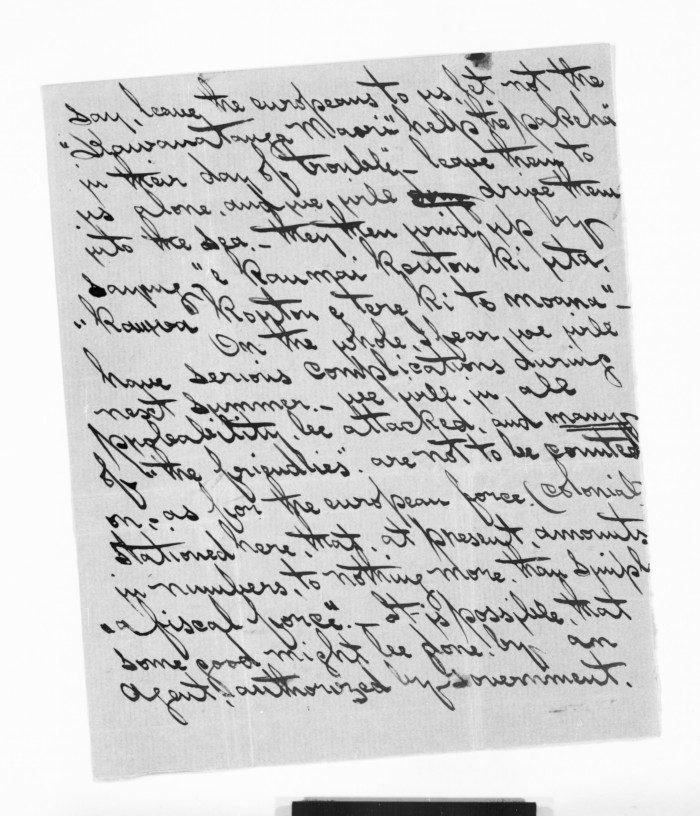 say, leave the europeans to us, let not the
"Kawanatanga Maori" help the "pakeha"
in their day of "trouble" – leave them to
us alone, and we will drive them
into the sea. – they then wind up by
saying "e koutou ki uta,
"kauwa koutou e tere ki te moana" –
On the whole, I fear we will
have serious complications during
next summer. – we will in all
probability, be attacked, and many
of "the friendlies" are not to be counted
on, – as for the european force (colonial)
stationed here, that, at present amounts
in numbers, to nothing more, than simply
"a fiscal force". – It is possible, that
some good might be done, by an
Agent, authorized by Government.